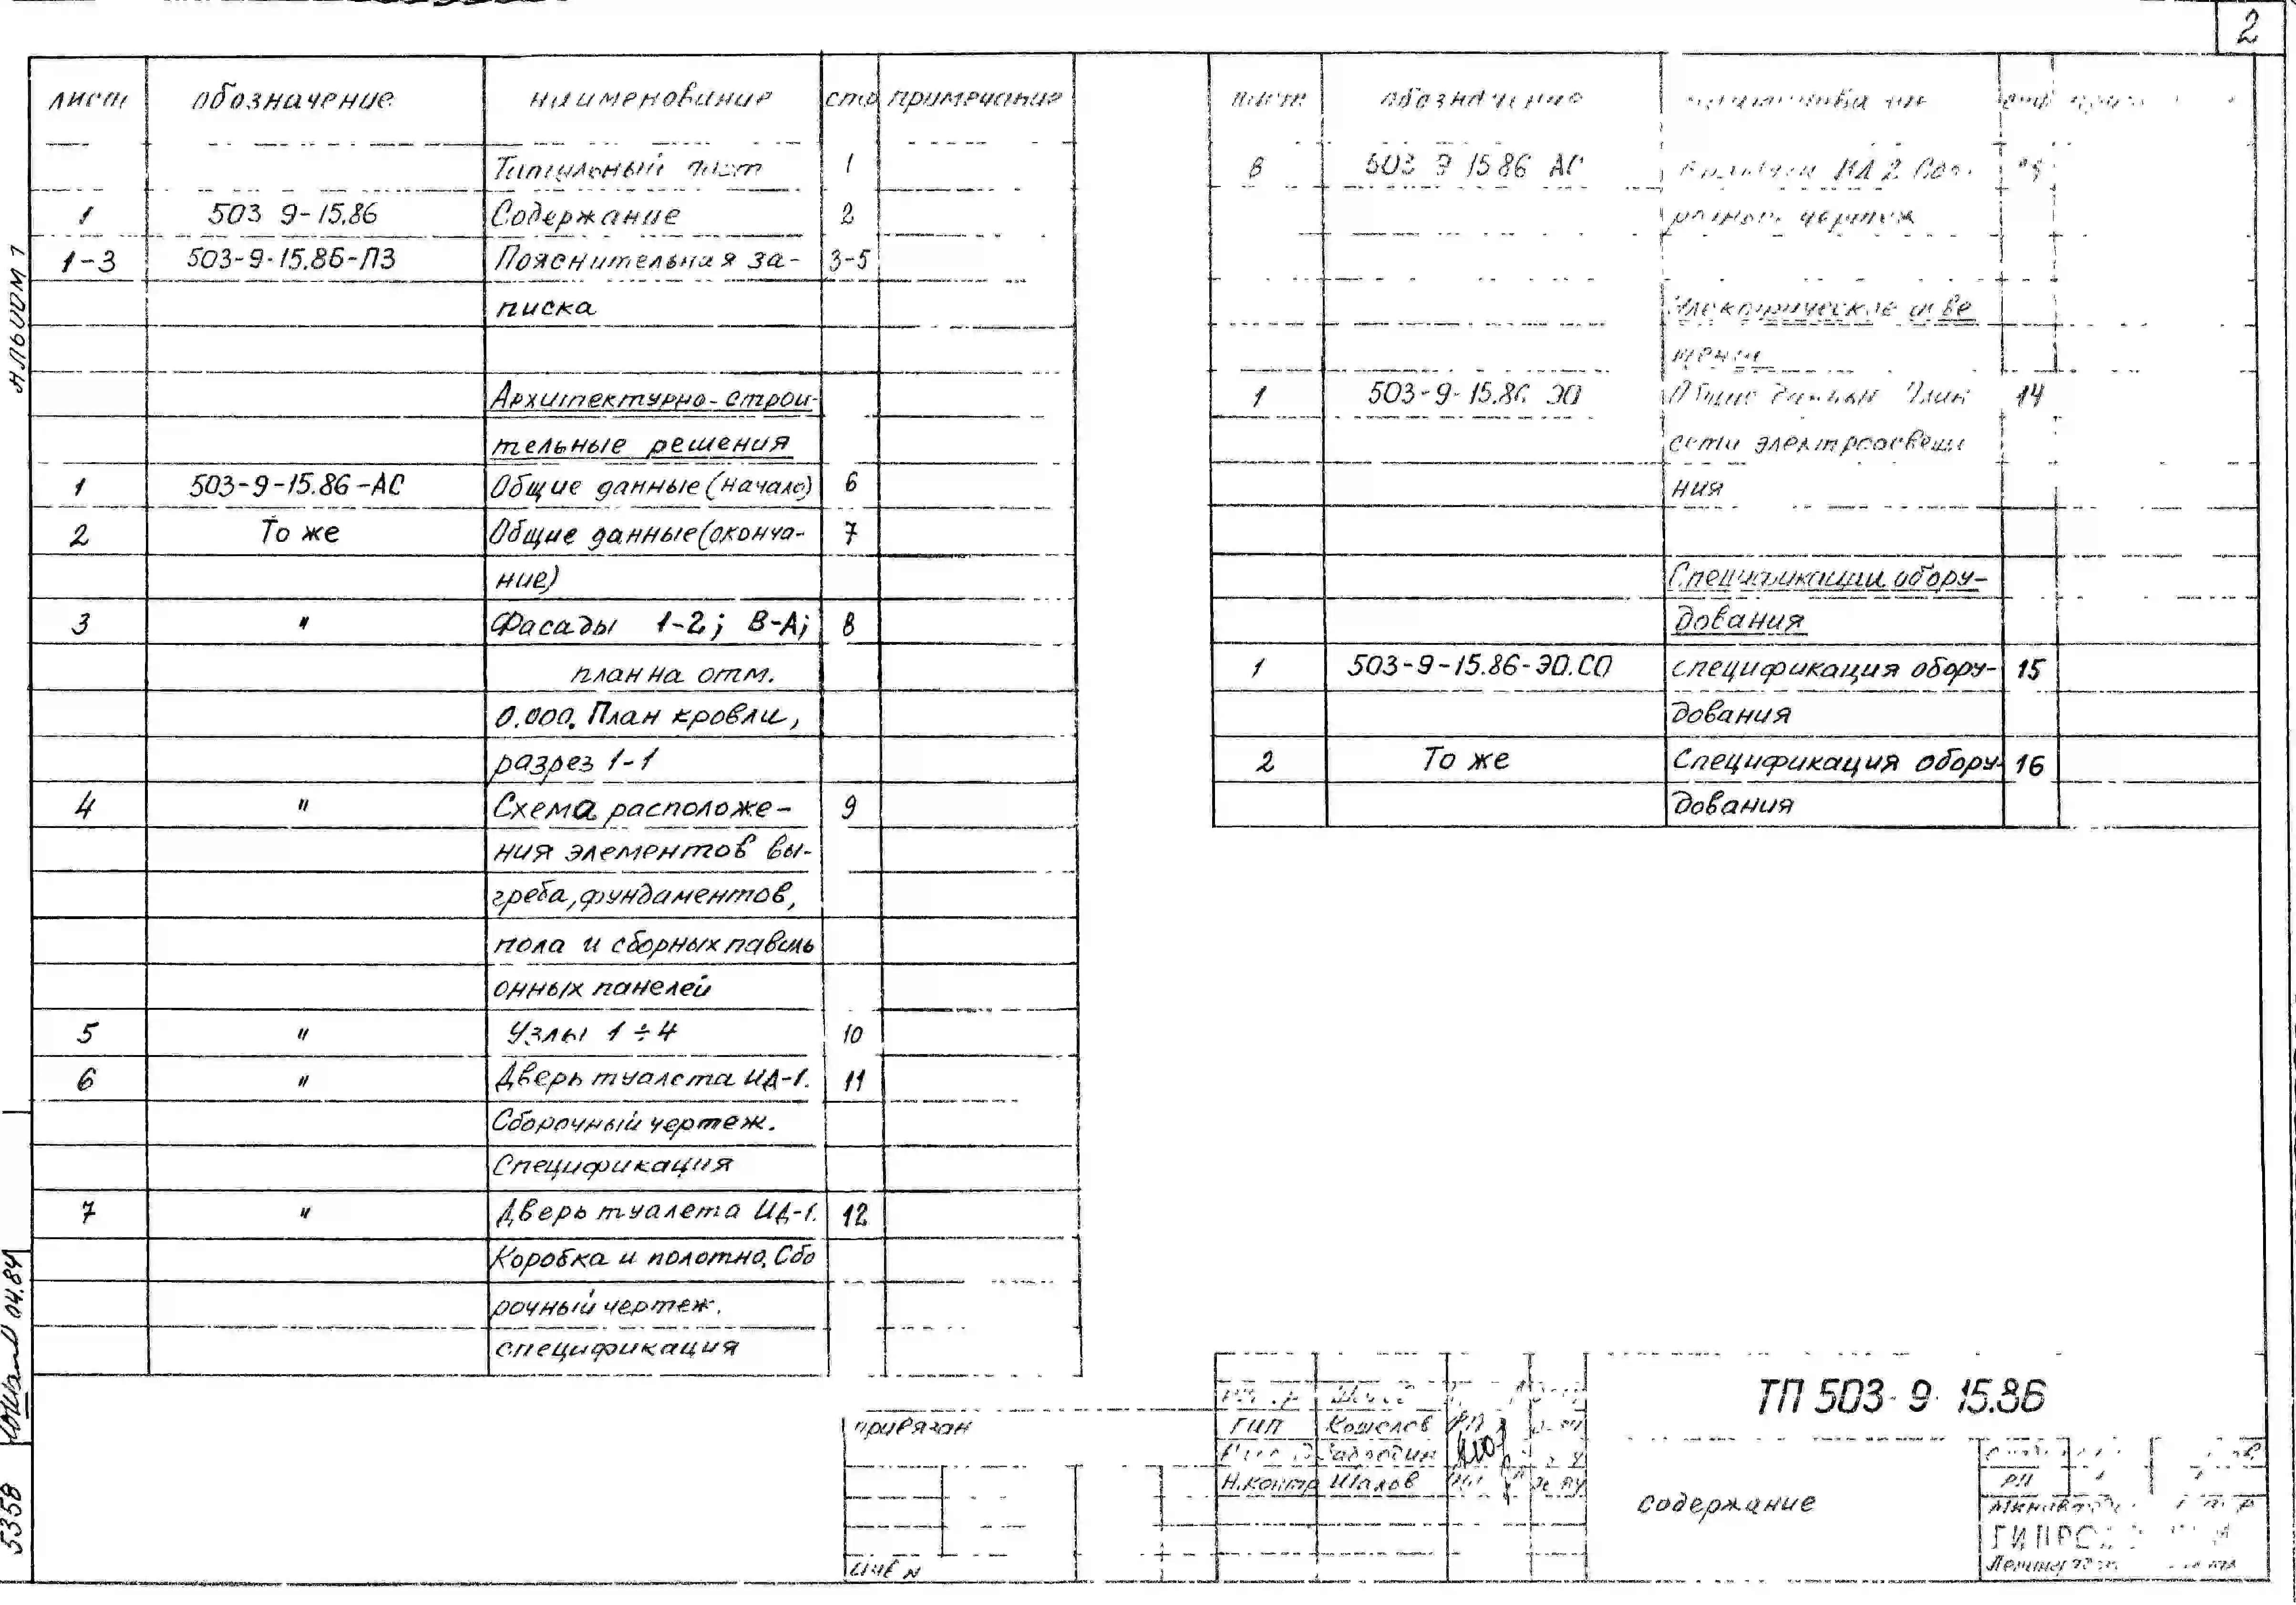 2
Альбом 1
лист обозначение наименование стр примечание
Титульный лист 1
1 503 9-15.86 Содержание 2
1-3 503-9-15.86-ПЗ Пояснительная за- 3-5
писка
Архитектурно-строи-
тельные решения
1 503-9-15.86-АС Общие данные (начало) 6
2 То же Общие данные (оконча- 7
ние)
3 " Фасады 1-2; В-А; 8
план на отм.
0.000. План кровли,
разрез 1-1
4 " Схема расположе- 9
ния элементов вы-
греба, фундаментов,
пола и сборных павиль
онных панелей
5 " Узлы 1÷4 10
6 " Дверь туалета ИД-1. 11
Сборочный чертеж.
Спецификация
7 " Дверь туалета ИД-1. 12
Коробка и полотно. Сбо
рочный чертеж.
спецификация
лист обозначение
8 503 9 15 86 АС
чертеж
Электрическое осве
щение
1 503-9-15.86 ЭО Общие данные 14
сети электроосвеще
ния
Спецификации обору-
дования
1 503-9-15.86-ЭО.СО спецификация обору- 15
дования
2 То же Спецификация обору- 16
дования
привязан
Инв N
ГИП Кошелев
Н.контр Шалов
ТП 503-9-15.86
содержание
РП
04.84
5358